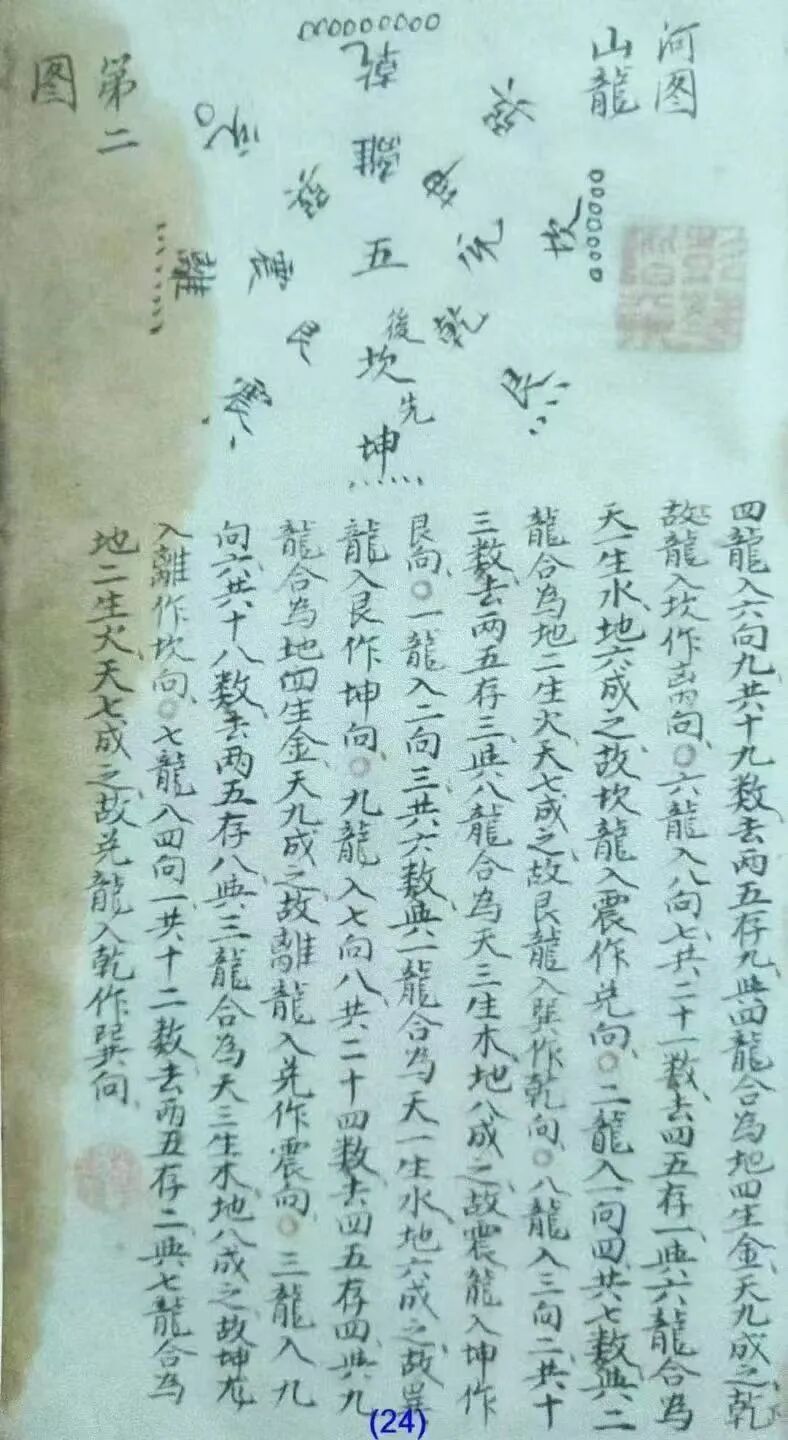 河图
山龍
第二
图
乾
離
五
後
坎
先
坤
坎
兑
乾
艮
巽
震
離
四龍入六向九共十九数去两五存九與四龍合為地四生金天九成之乾
故龍入坎作离向○六龍入八向七共二十一数去四五存一與六龍合為
天一生水地六成之故坎龍入震作兑向○二龍入一向四共七数與二
龍合為地二生火天七成之故艮龍入巽作乾向○八龍入三向二共十
三数去两五存三與八龍合為天三生木地八成之故震龍入坤作
艮向○一龍入二向三共六数與一龍合為天一生水地六成之故巽
龍入艮作坤向○九龍入七向八共二十四数去四五存四與九
龍合為地四生金天九成之故離龍入兑作震向○三龍入九
向六共十八数去两五存八與三龍合為天三生木地八成之故坤龙
入離作坎向○七龍入四向一共十二数去两五存二與七龍合為
地二生火天七成之故兑龍入乾作巽向
(24)